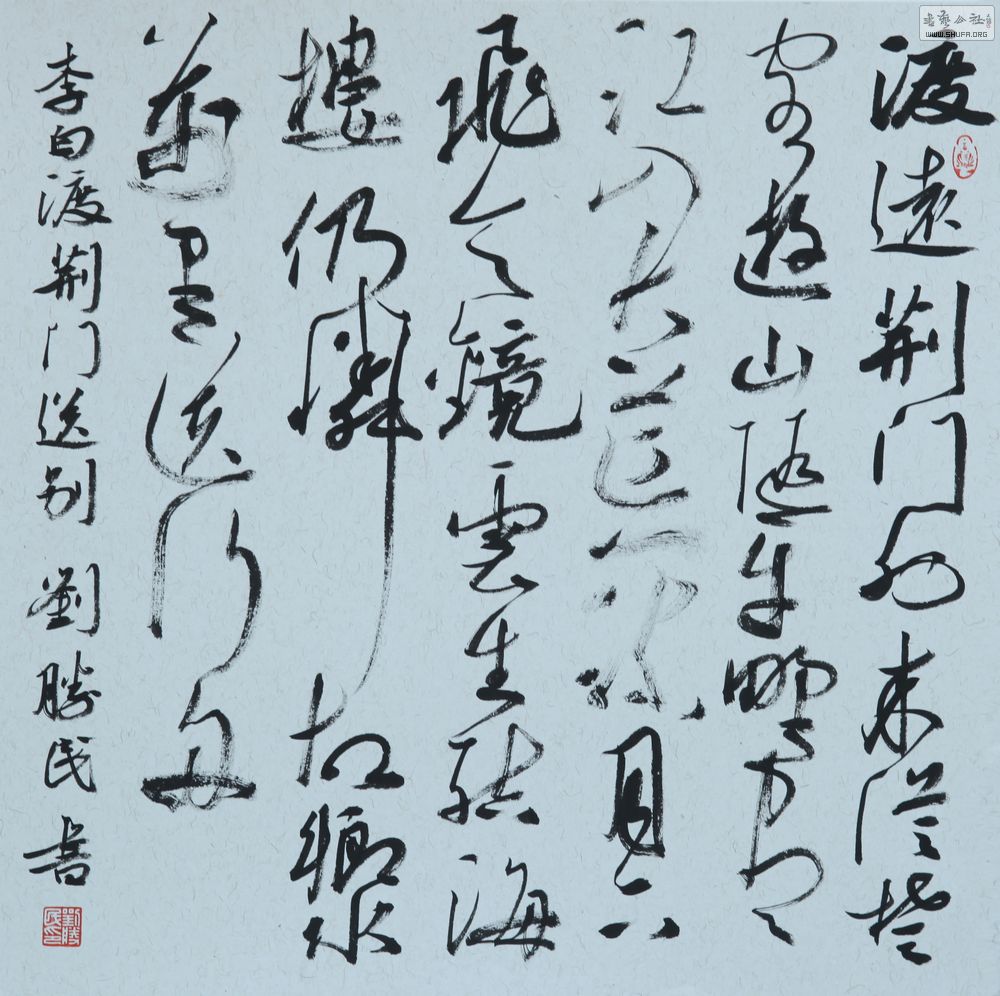 渡遠荆门外来從楚
客遊山隨平野尽
江入大荒流月下
飛天鏡雲生結海
樓仍憐故鄉水
萬里送行舟
李白渡荆门送别 劉勝民書
劉勝民印
書藝公社
WWW.SHUFA.ORG